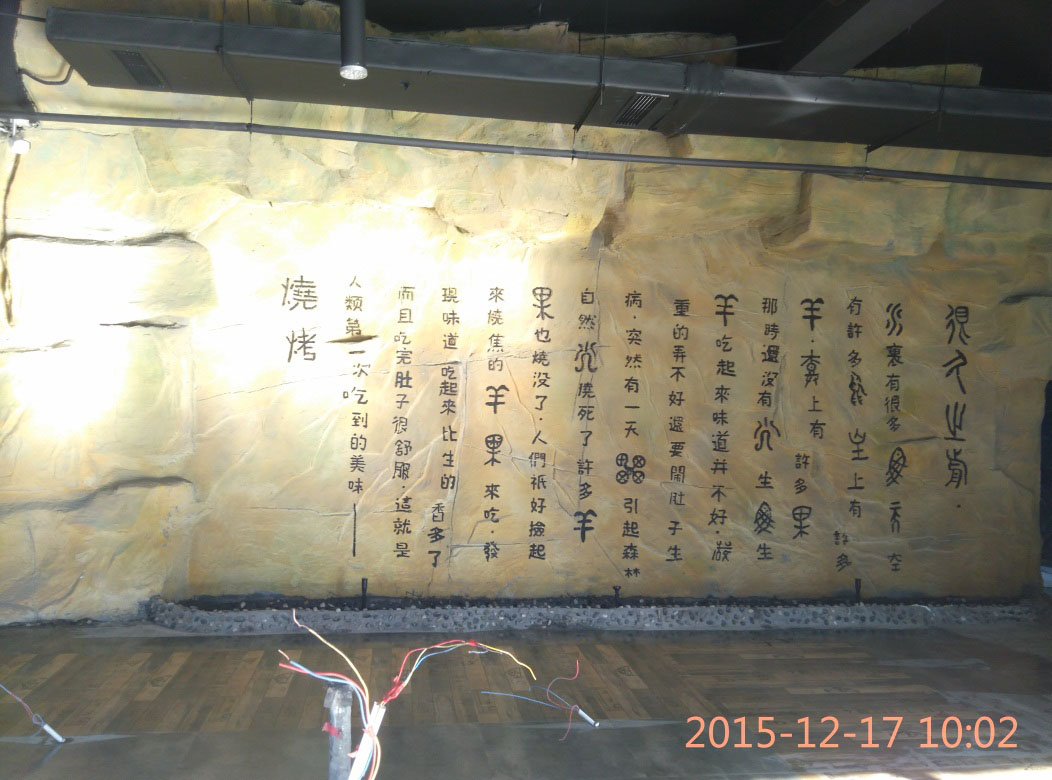 很久之前.
水裏有很多魚天空
有許多鳥土上有許多
羊.樹上有許多果
那時還没有火生魚生
羊吃起來味道并不好.嚴
重的弄不好還要鬧肚子生
病.突然有一天雷引起森林
自然火燒死了許多羊
果也燒没了.人們祇好撿起
來燒焦的羊果來吃.發
現味道吃起來比生的香多了
而且吃完肚子很舒服.這就是
人類第一次吃到的美味——
燒烤
2015-12-17 10:02